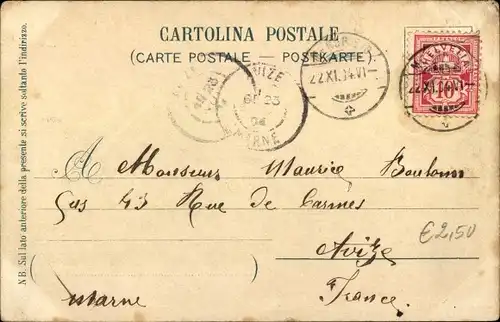 CARTOLINA POSTALE
(CARTE POSTALE — POSTKARTE)
HELVETIA
22.XI.04.VI
22.XI.04.VI
AVIZE
23
04
MARNE
N B. Sul lato anteriore della presente si scrive soltanto l'indirizzo.
A Monsieur Maurice
43 Rue de Carmes
Avize
France.
Marne
€2,50